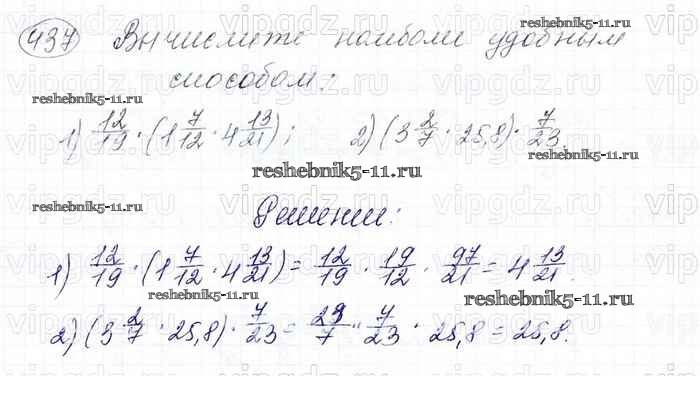 437 Вычислите наиболее удобным
способом:
reshebnik5-11.ru
reshebnik5-11.ru
1) 12/19 · (1 7/12 · 4 13/21); 2) (3 2/7 · 25,8) · 7/23.
reshebnik5-11.ru
reshebnik5-11.ru
reshebnik5-11.ru
Решение:
1) 12/19 · (1 7/12 · 4 13/21) = 12/19 · 19/12 · 97/21 = 4 13/21.
reshebnik5-11.ru
reshebnik5-11.ru
2) (3 2/7 · 25,8) · 7/23 = 23/7 · 7/23 · 25,8 = 25,8.